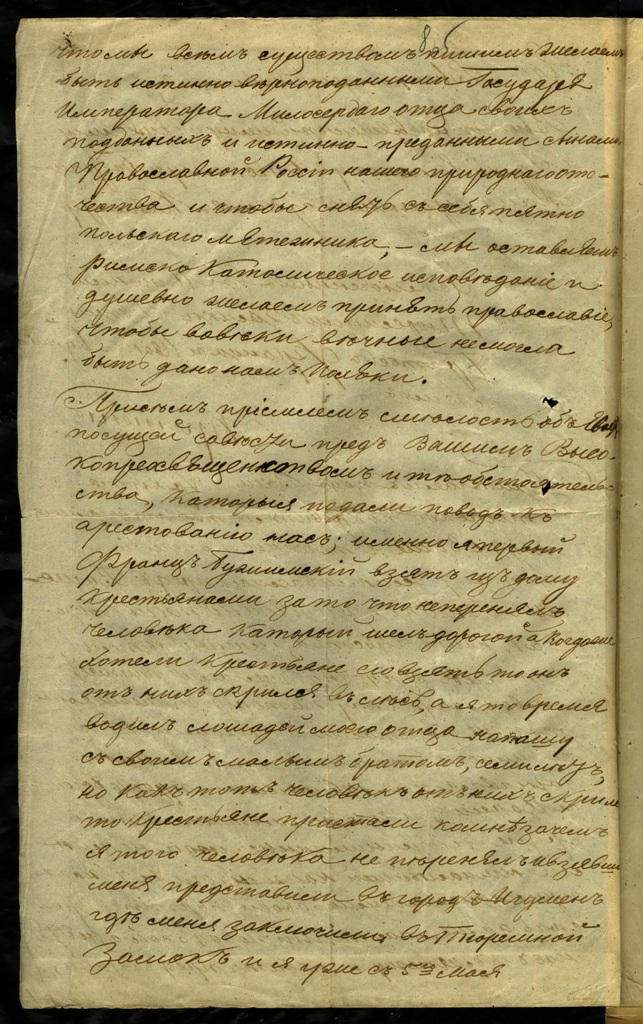 что мы всемъ существомъ нашимъ желаемъ
быть истинно верноподанными Государя
Императора Милосердаго отца своихъ
подданныхъ и истинно-преданными сынами
Православной Россіи нашего природнаго оте-
чества и чтобы снять съ себя пятно
польскаго мятежника, – мы оставляемъ
Римско Католическое исповѣданіе и
душевно желаемъ принять православіе,
чтобы вовѣки вѣчные немогла
быть дано намъ Поляки.
Присемъ пріемлемъ смелость объ
совѣсти предъ Вашимъ Высо-
копреосвященствомъ и тѣ обстоятель-
ства, которыя подали поводъ къ
арестованію насъ; именно я первый
Францъ взятъ изъ дому
крестьянами за то что неперенялъ
человѣка каторый шелъ дорогой а когда его
хотели крестьяне словять то онъ
отъ нихъ скрился въ лѣсѣ, а я то время
водилъ лошадей моего отца напашу
съ своимъ малымъ братомъ, семи лѣтъ,
но какъ тотъ человѣкъ отъ нихъ скрился
то крестьяне пристали комнѣ зачемъ
я того человѣка не перенялъ и взявши
меня представили въ городъ Игуменъ
гдѣ меня заключили въ Тюремной
Замокъ и я уже съ 5го мая